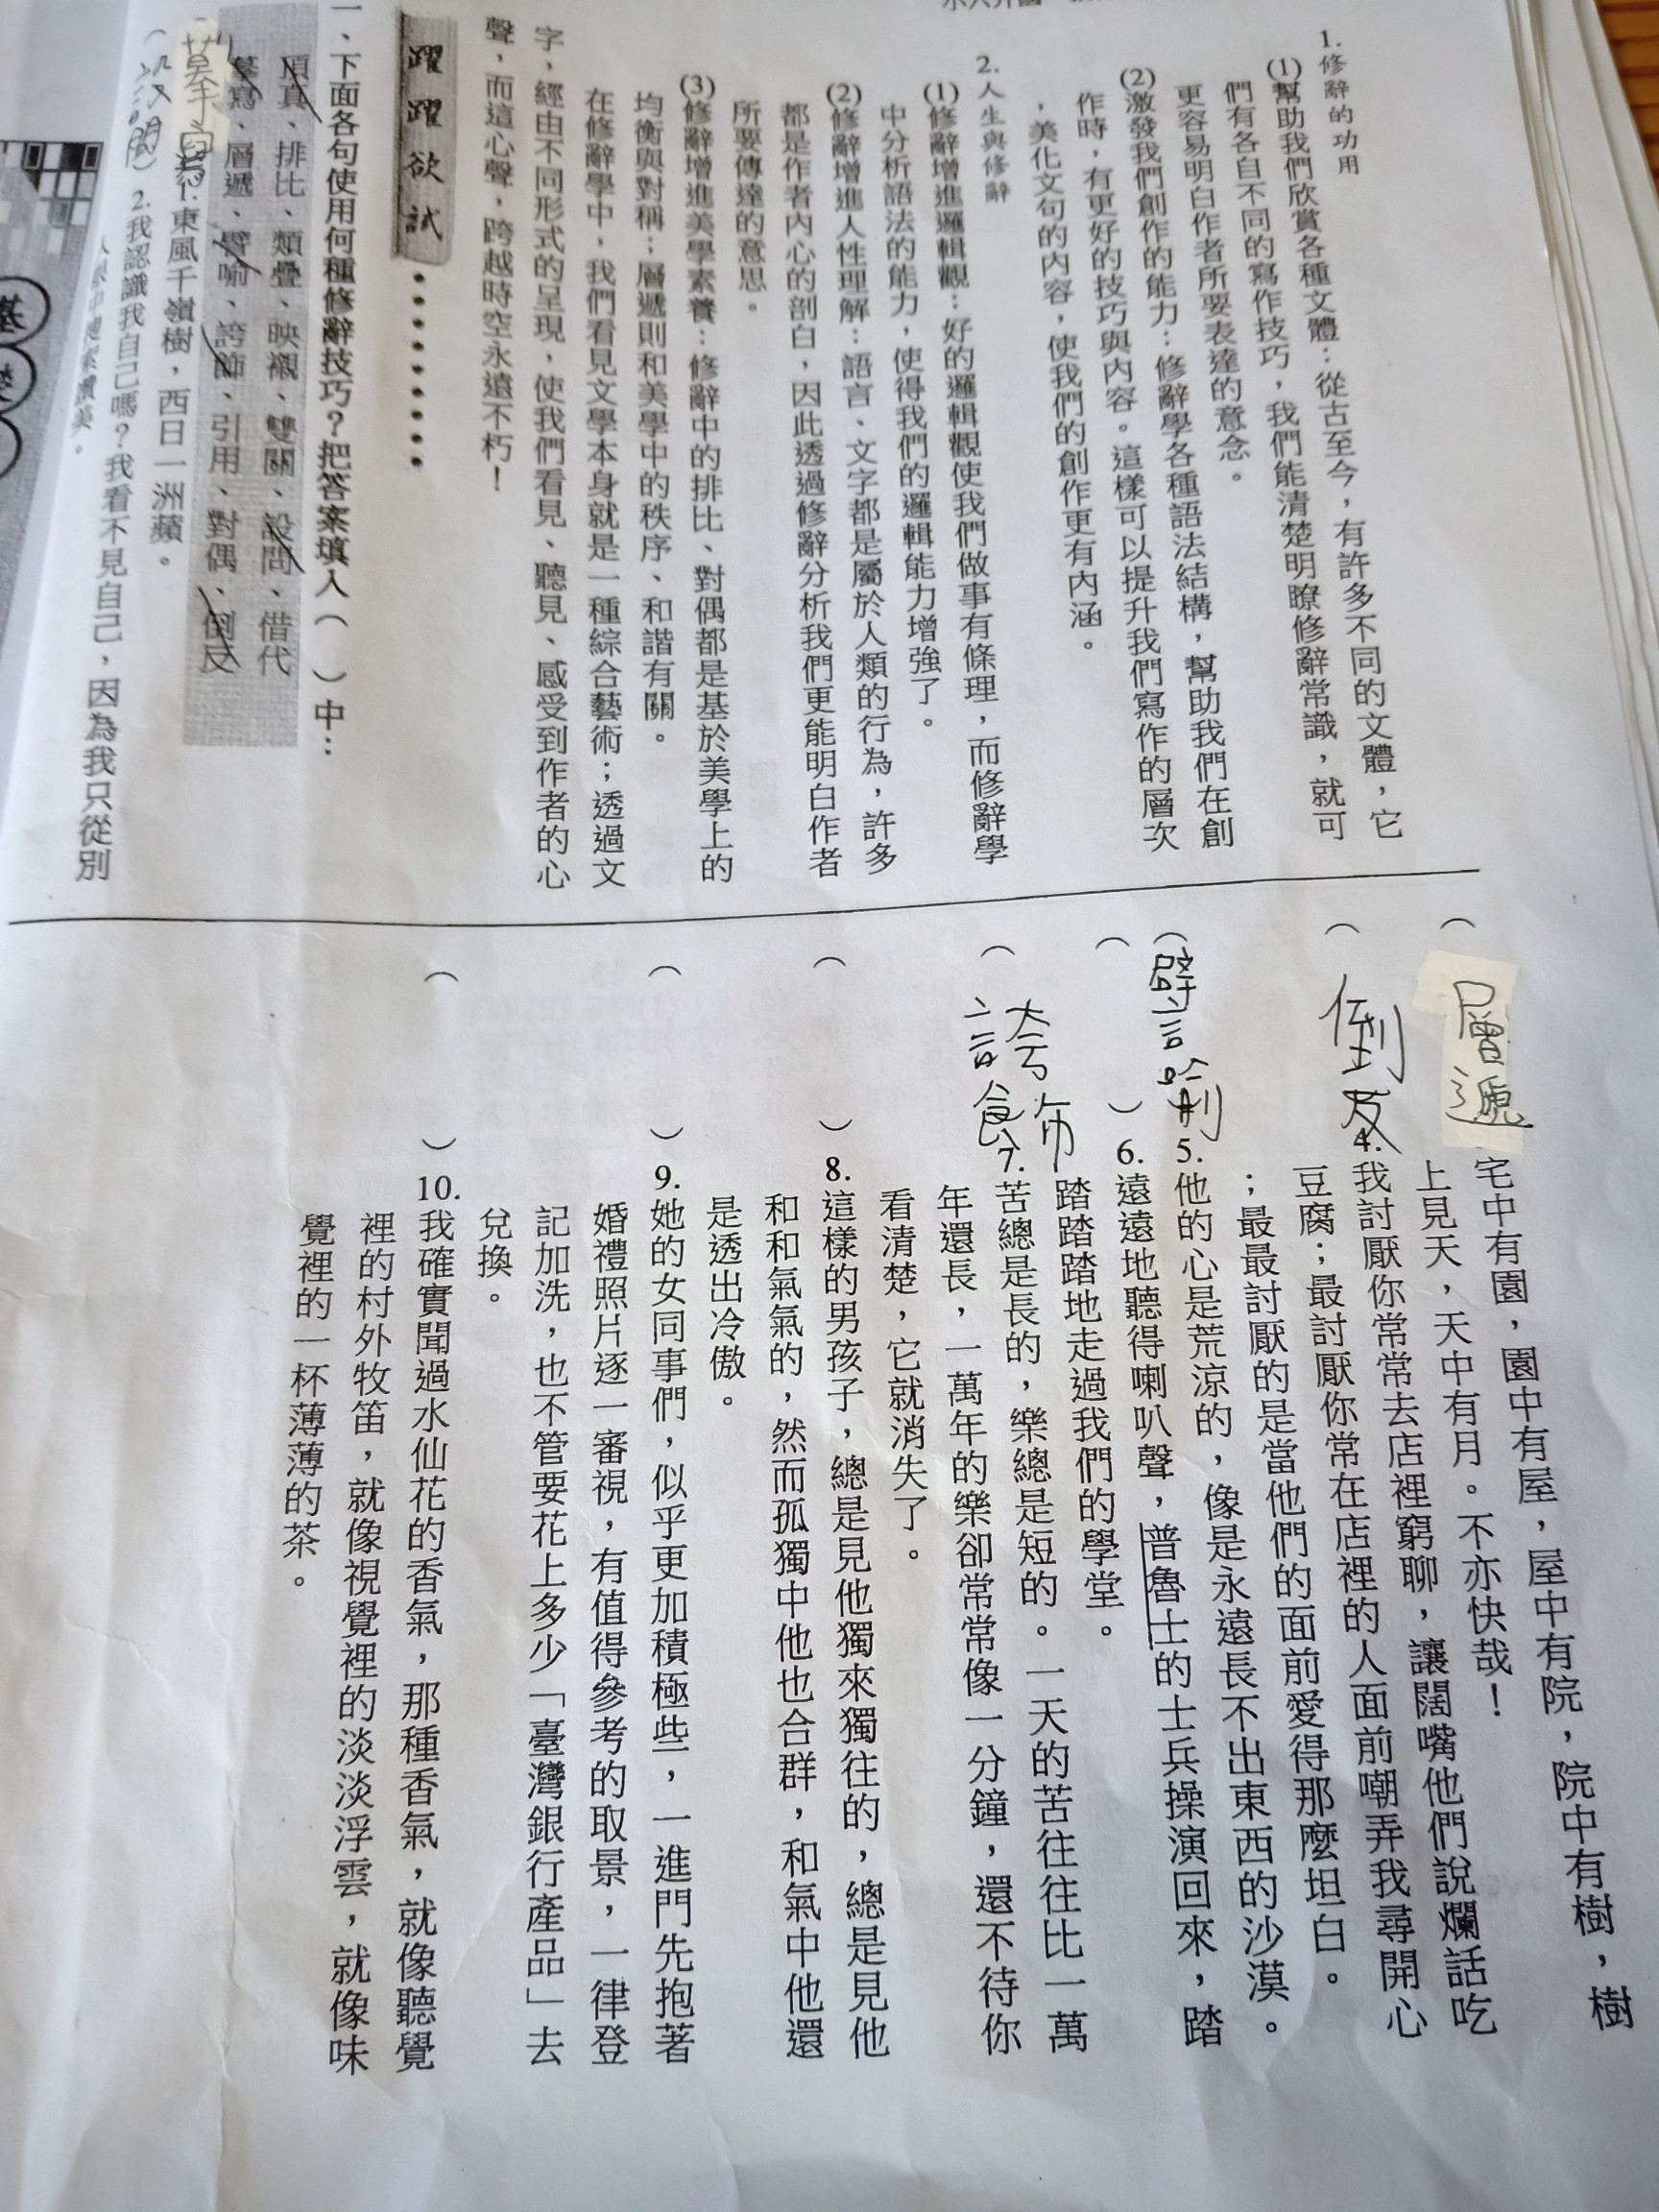 1.修辭的功用
(1)幫助我們欣賞各種文體：從古至今，有許多不同的文體，它
們有各自不同的寫作技巧，我們能清楚明瞭修辭常識，就可
更容易明白作者所要表達的意念。
(2)激發我們創作的能力：修辭學各種語法結構，幫助我們在創
作時，有更好的技巧與內容。這樣可以提升我們寫作的層次
，美化文句的內容，使我們的創作更有內涵。
2.人生與修辭
(1)修辭增進邏輯觀：好的邏輯觀使我們做事有條理，而修辭學
中分析語法的能力，使得我們的邏輯能力增強了。
(2)修辭增進人性理解：語言、文字都是屬於人類的行為，許多
都是作者內心的剖白，因此透過修辭分析我們更能明白作者
所要傳達的意思。
(3)修辭增進美學素養：修辭中的排比、對偶都是基於美學上的
均衡與對稱；層遞則和美學中的秩序、和諧有關。
在修辭學中，我們看見文學本身就是一種綜合藝術；透過文
字，經由不同形式的呈現，使我們看見、聽見、感受到作者的心
聲，而這心聲，跨越時空永遠不朽！
躍躍欲試
一、下面各句使用何種修辭技巧？把答案填入（　）中：
頂真、排比、類疊、映襯、雙關、設問、借代
摹寫、層遞、譬喻、誇飾、引用、對偶、倒反
摹寫 1.東風千嶺樹，西日一洲蘋。
（設問）2.我認識我自己嗎？我看不見自己，因為我只從別
人眼中搜索讚美。
（層遞 宅中有園，園中有屋，屋中有院，院中有樹，樹
上見天，天中有月。不亦快哉！
（倒反 4.我討厭你常常去店裡窮聊，讓闊嘴他們說爛話吃
豆腐；最討厭你常在店裡的人面前嘲弄我尋開心
；最最討厭的是當他們的面前愛得那麼坦白。
（譬喻 5.他的心是荒涼的，像是永遠長不出東西的沙漠。
（　）6.遠遠地聽得喇叭聲，普魯士的士兵操演回來，踏
踏踏踏地走過我們的學堂。
（誇飾 7.苦總是長的，樂總是短的。一天的苦往往比一萬
年還長，一萬年的樂卻常常像一分鐘，還不待你
看清楚，它就消失了。
（　）8.這樣的男孩子，總是見他獨來獨往的，總是見他
和和氣氣的，然而孤獨中他也合群，和氣中他還
是透出冷傲。
（　）9.她的女同事們，似乎更加積極些，一進門先抱著
婚禮照片逐一審視，有值得參考的取景，一律登
記加洗，也不管要花上多少「臺灣銀行產品」去
兌換。
（　）10.我確實聞過水仙花的香氣，那種香氣，就像聽覺
裡的村外牧笛，就像視覺裡的淡淡浮雲，就像味
覺裡的一杯薄薄的茶。